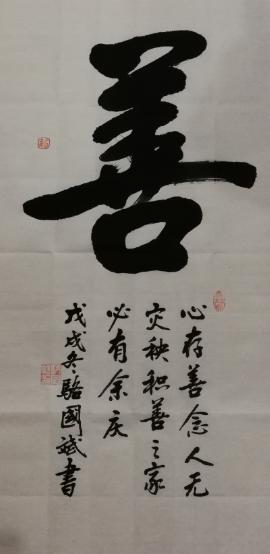 善
心存善念人无
灾秧积善之家
必有余庆
戊戌冬骆國斌書